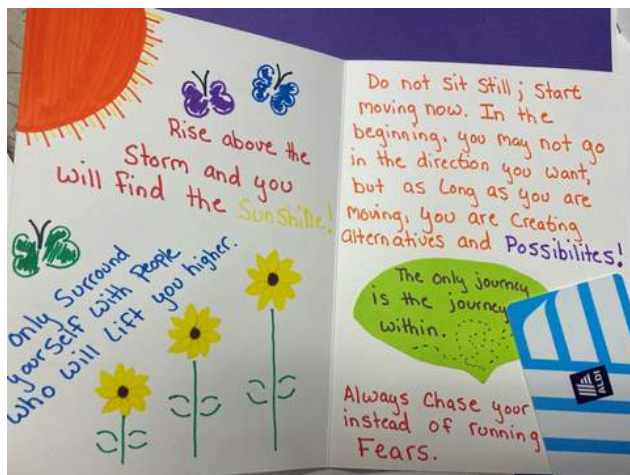 Rise above the
Storm and you
will find the Sunshine!
only Surround
yourself with people
who will Lift you higher.
Do not sit still; start
moving now. In the
beginning, you may not go
in the direction you want,
but as long as you are
moving, you are creating
alternatives and Possibilites!
The only journey
is the journey
within.
Always Chase your
instead of running
Fears.
ALDI